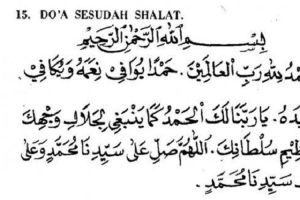 15. DO'A SESUDAH SHALAT.
بِسْمِ اللهِ الرَّحْمٰنِ الرَّحِيْمِ
لِلّٰهِ رَبِّ الْعَالَمِيْنَ. حَمْدًا يُوَافِيْ نِعَمَهُ وَيُكَافِيْ
يَارَبَّنَا لَكَ الْحَمْدُ كَمَا يَنْبَغِيْ لِجَلَالِ وَجْهِكَ
سُلْطَانِكَ. اَللّٰهُمَّ صَلِّ عَلَى سَيِّدِنَا مُحَمَّدٍ وَعَلَى
سَيِّدِنَا مُحَمَّدٍ.